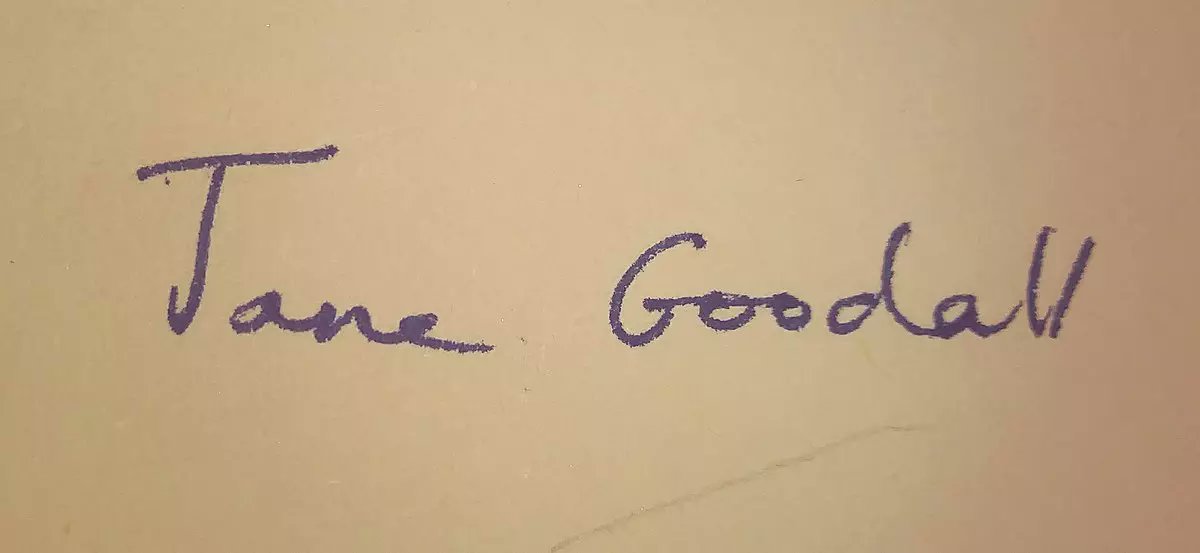 Jane Goodall